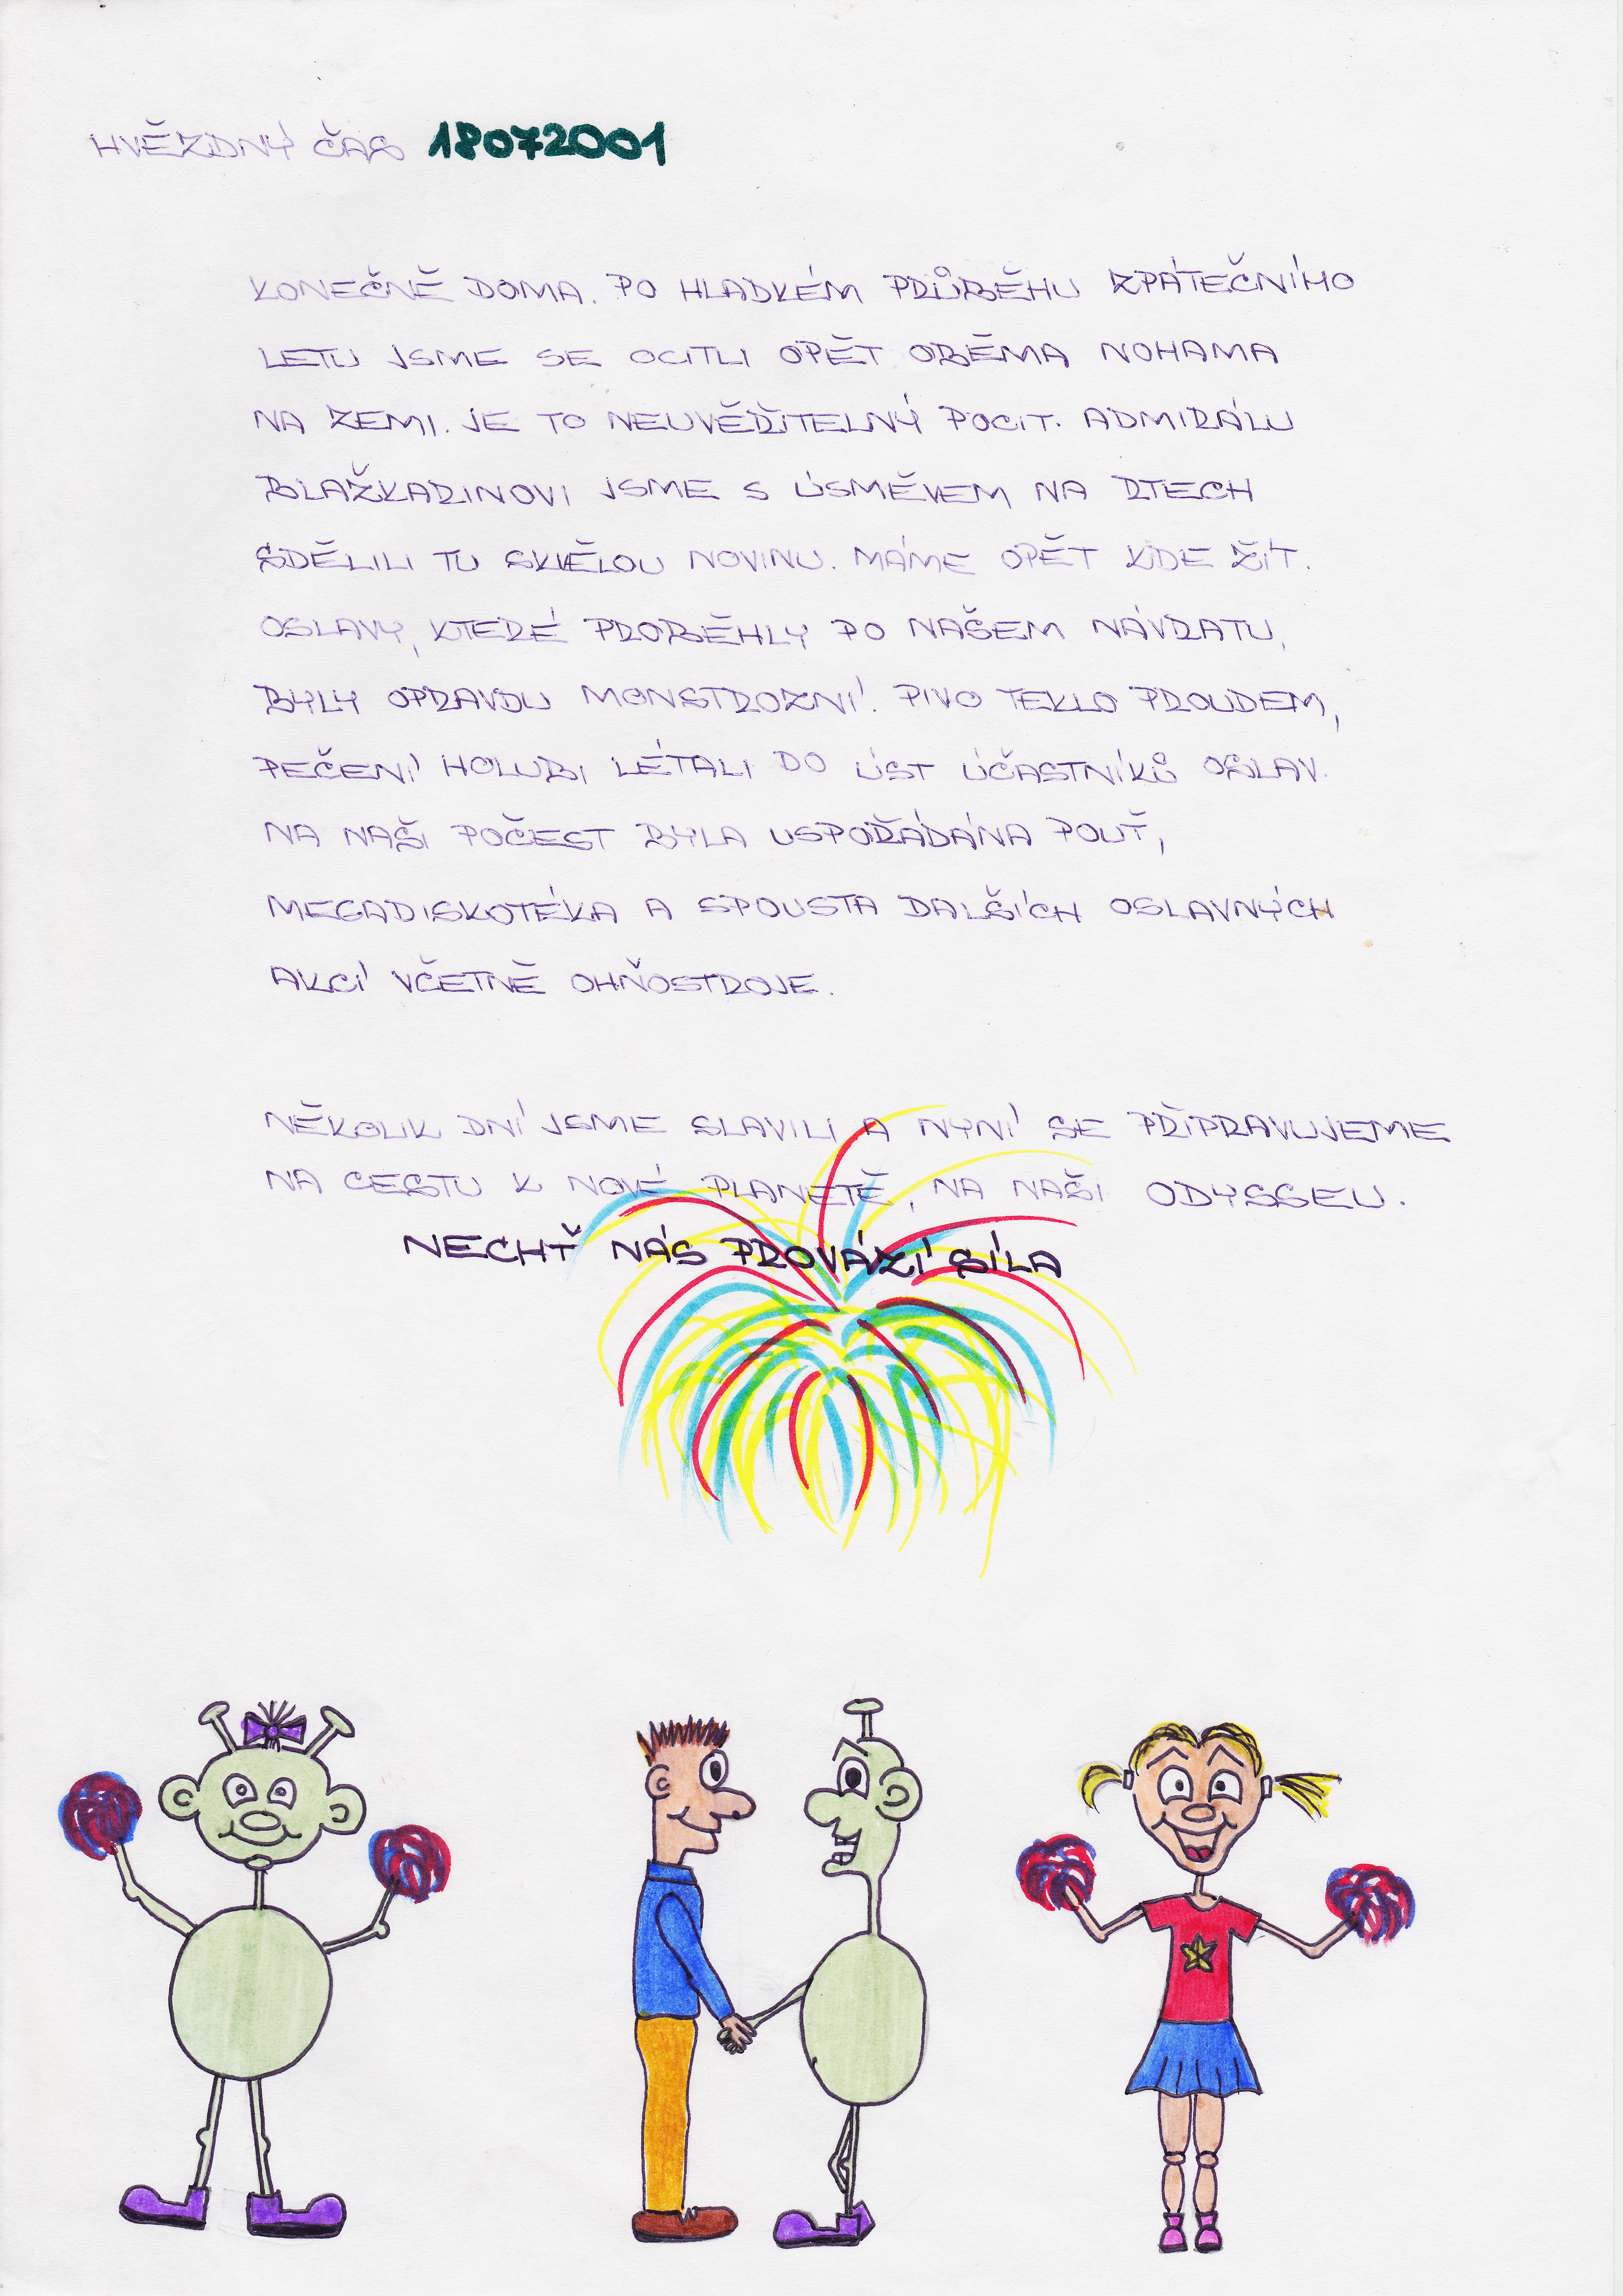 HVĚZDNÝ ČAS 18072001
KONEČNĚ DOMA. PO HLADKÉM PRŮBĚHU ZPÁTEČNÍHO
LETU JSME SE OCITLI OPĚT OBĚMA NOHAMA
NA ZEMI. JE TO NEUVĚŘITELNÝ POCIT. ADMIRÁLU
BLAŽKARINOVI JSME S ÚSMĚVEM NA RTECH
SDĚLILI TU SKVĚLOU NOVINU. MÁME OPĚT KDE ŽÍT.
OSLAVY, KTERÉ PROBĚHLY PO NAŠEM NÁVRATU,
BYLY OPRAVDU MONSTROZNÍ. PIVO TEKLO PROUDEM,
PEČENÍ HOLUBI LÉTALI DO ÚST ÚČASTNÍKŮ OSLAV.
NA NAŠI POČEST BYLA USPOŘÁDÁNA POUŤ,
MEGADISKOTÉKA A SPOUSTA DALŠÍCH OSLAVNÝCH
AKCÍ VČETNĚ OHŇOSTROJE.
NĚKOLIK DNÍ JSME SLAVILI A NYNÍ SE PŘIPRAVUJEME
NA CESTU K NOVÉ PLANETĚ, NA NAŠI ODYSSEU.
NECHŤ NÁS PROVÁZÍ SÍLA